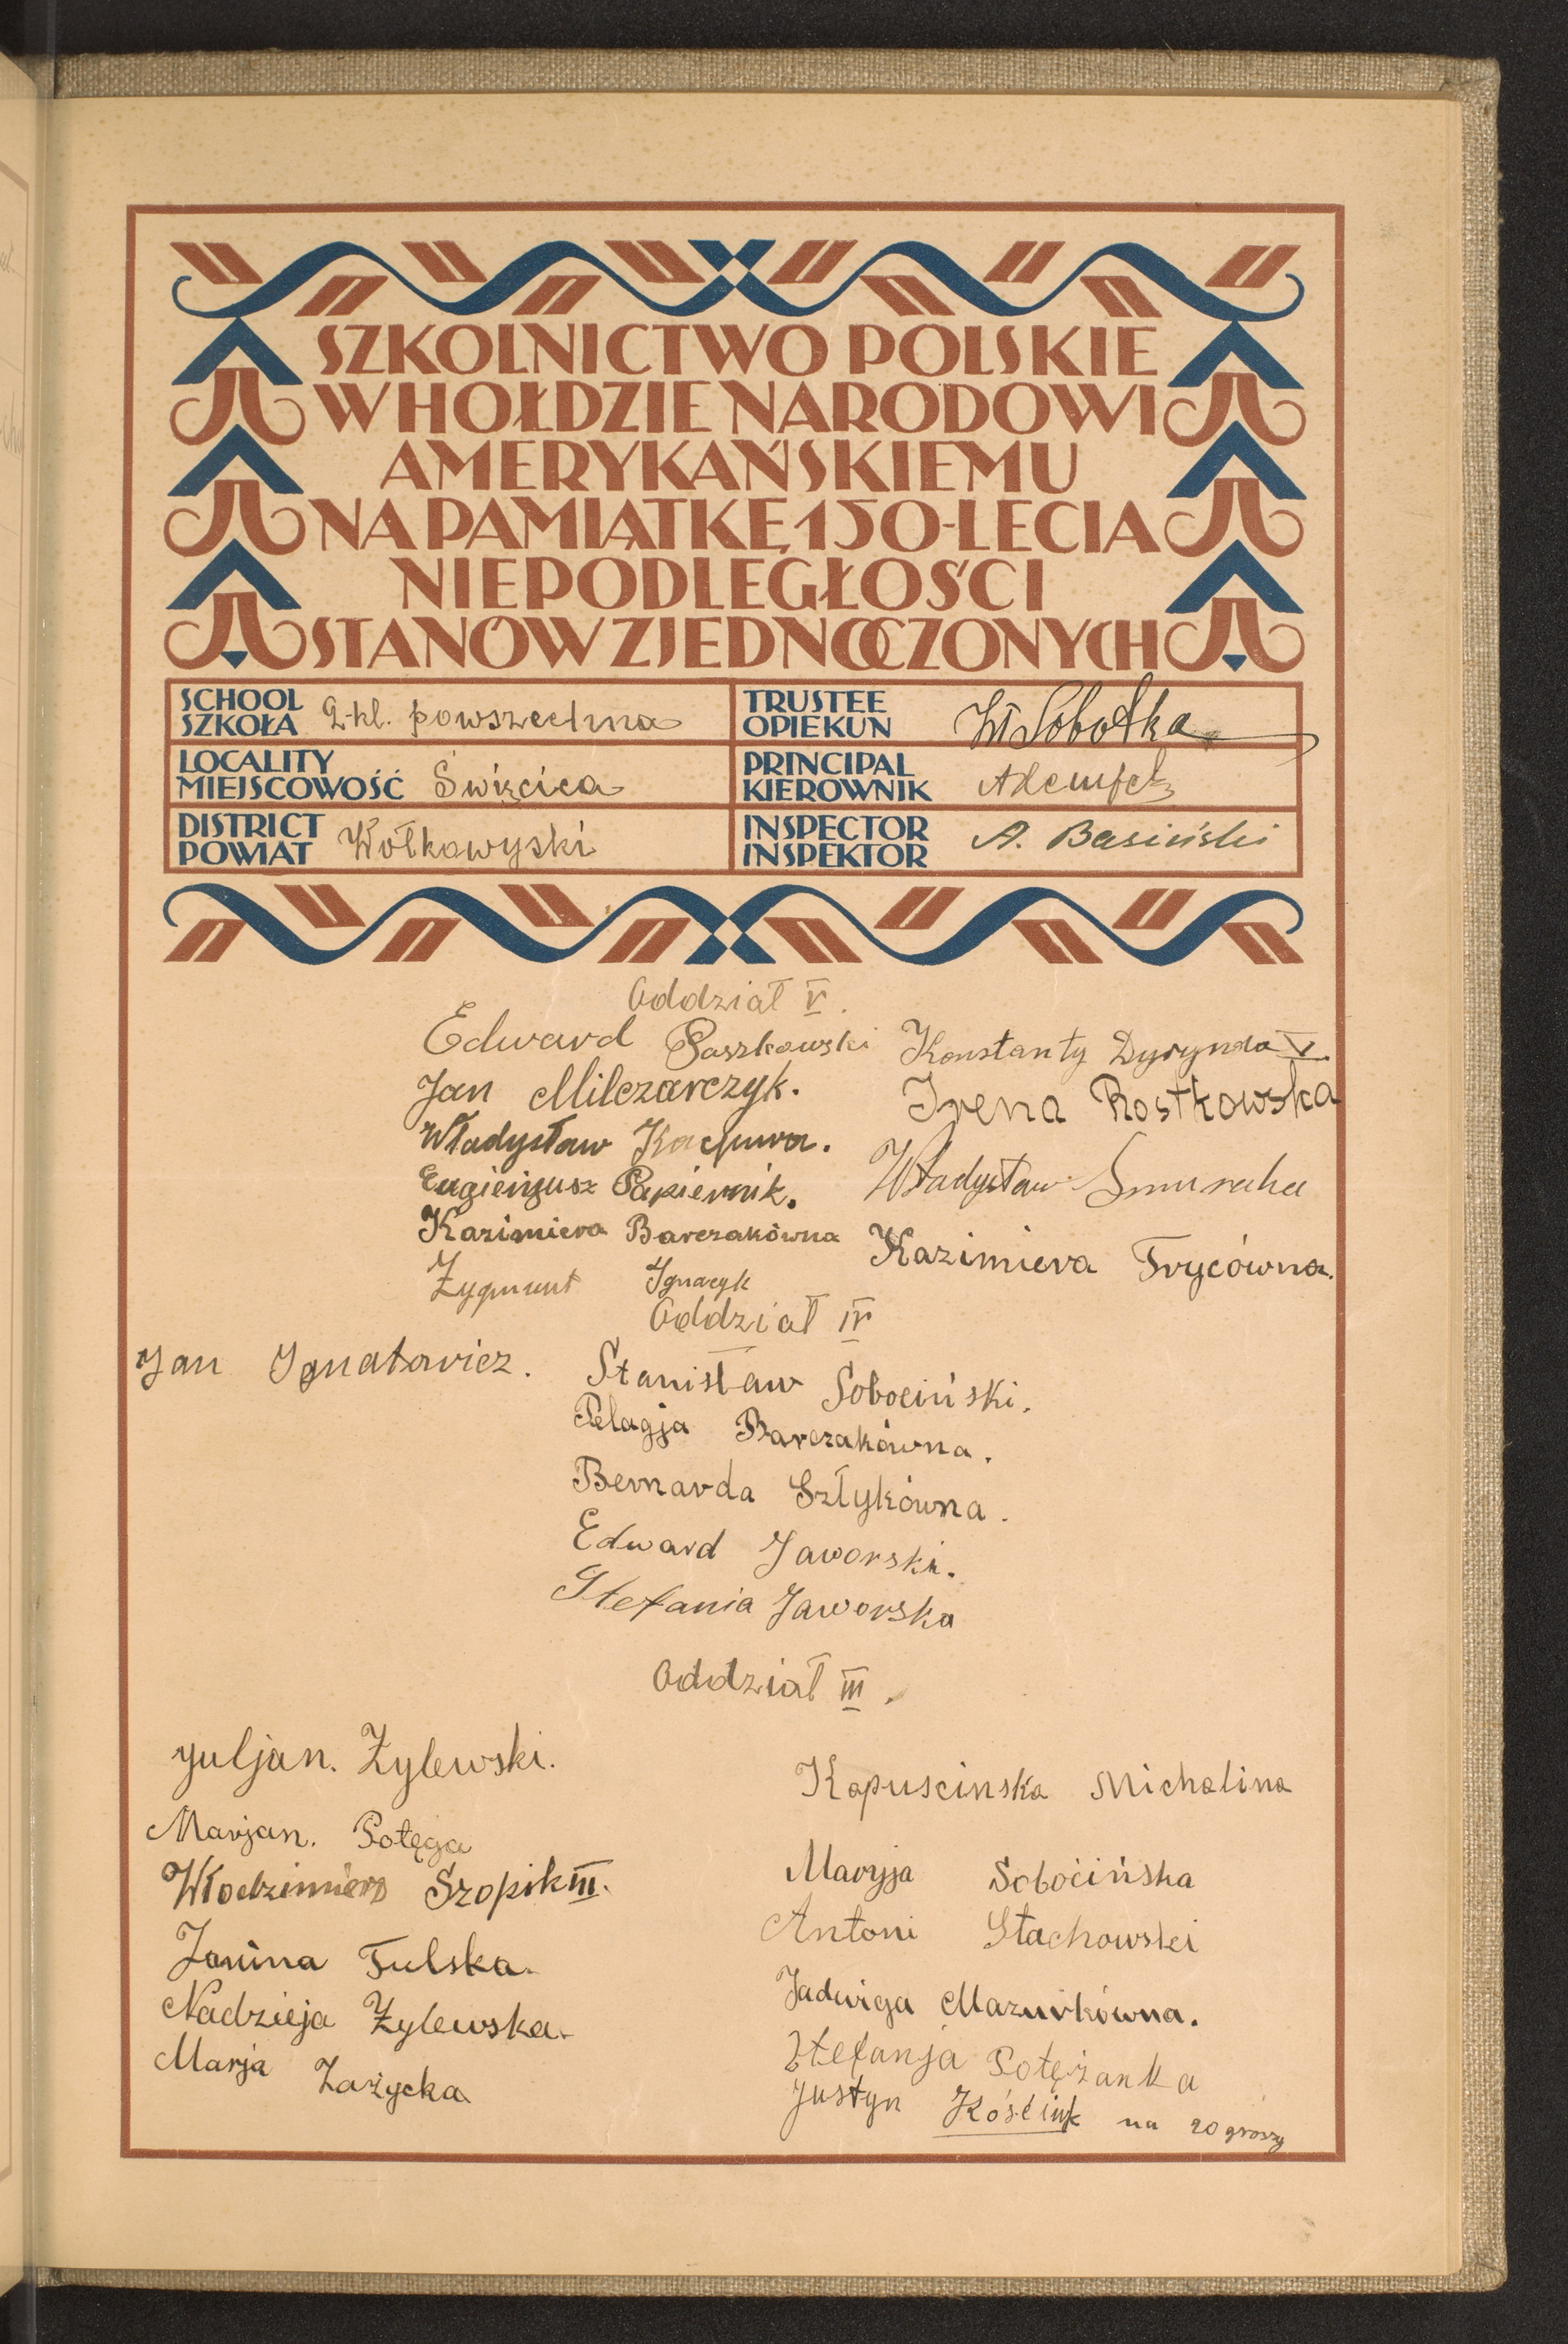 SZKOLNICTWO POLSKIE
W HOŁDZIE NARODOWI
AMERYKAŃSKIEMU
NA PAMIĄTKĘ 150-LECIA
NIEPODLEGŁOŚCI
STANÓW ZJEDNOCZONYCH
SCHOOL
SZKOŁA 2-kl. powszechna
TRUSTEE
OPIEKUN Wł Sobotka
LOCALITY
MIEJSCOWOŚĆ Święcica
PRINCIPAL
KIEROWNIK
DISTRICT
POWIAT Wołkowyski
INSPECTOR
INSPEKTOR A. Basiński
Oddział V.
Edward Paszkowski
Jan Milczarczyk.
Władysław
Eugienjusz Papiernik.
Kazimiera Barczakówna
Zygmunt Ignacyk
Konstanty Dyrynda V.
Irena Rostkowska
Władysław Smuraha
Kazimiera Trycówna.
Oddział IV
Jan Ignatowicz.
Stanisław Sobociński.
Pelagja Barczakówna.
Bernarda Sztykówna.
Edward Jaworski.
Stefania Jaworska
Oddział III.
Juljan. Żylewski.
Marjan. Potęga
Włodzimierz Szopik III.
Janina Tulska.
Nadzieja Żylewska.
Marja Zażycka
Kapuscinska Michalina
Maryja Sobocińska
Antoni Stachowski
Jadwiga Mazurkówna.
Stefanja Potężanka
Justyn Kóściuk na 20 groszy